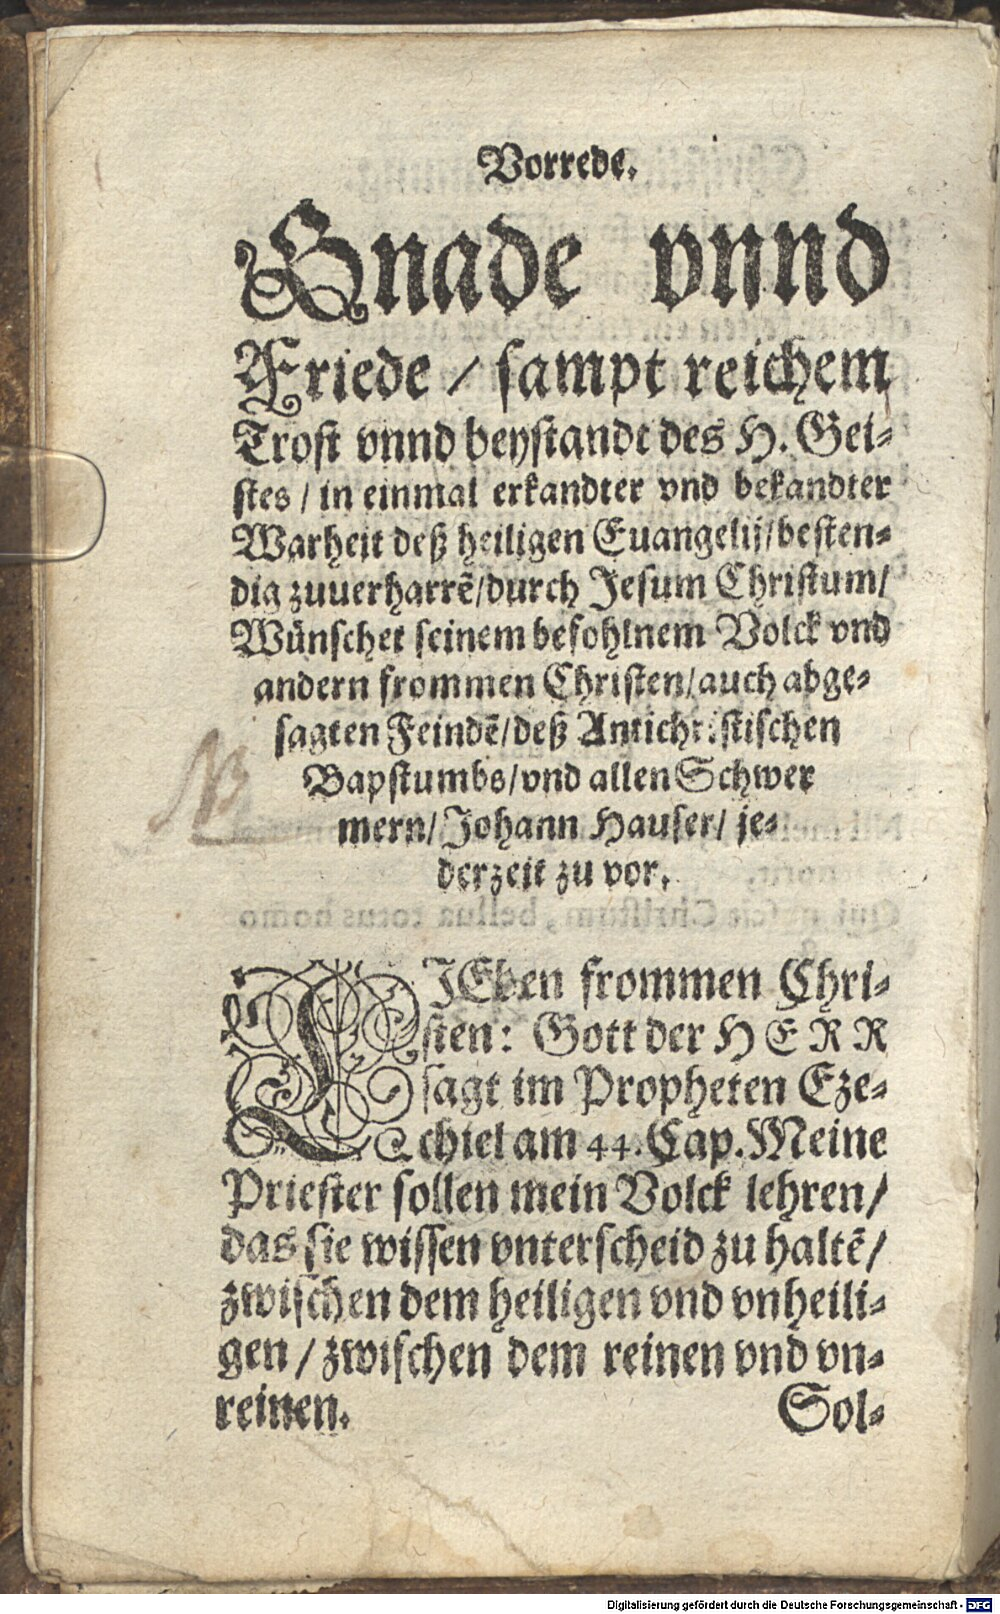 Vorrede.
Gnade vnnd
Friede / sampt reichem
Trost vnnd beystandt des H. Gei-
stes / in einmal erkandter vnd bekandter
Warheit deß heiligen Euangelij/besten-
dig zuuerharrẽ/durch Jesum Christum/
Wünschet seinem befohlnem Volck vnd
andern frommen Christen/auch abge-
sagten Feindẽ/deß Antichristischen
Bapstumbs/vnd allen Schwer
mern/Johann Hauser/ je-
derzeit zu vor.
NB
LIEben frommen Chri-
sten: Gott der HERR
sagt im Propheten Eze-
chiel am 44. Cap. Meine
Priester sollen mein Volck lehren/
das sie wissen vnterscheid zu haltẽ/
zwischen dem heiligen vnd vnheili-
gen / zwischen dem reinen vnd vn-
reinen.
Sol-
Digitalisierung gefördert durch die Deutsche Forschungsgemeinschaft - DFG